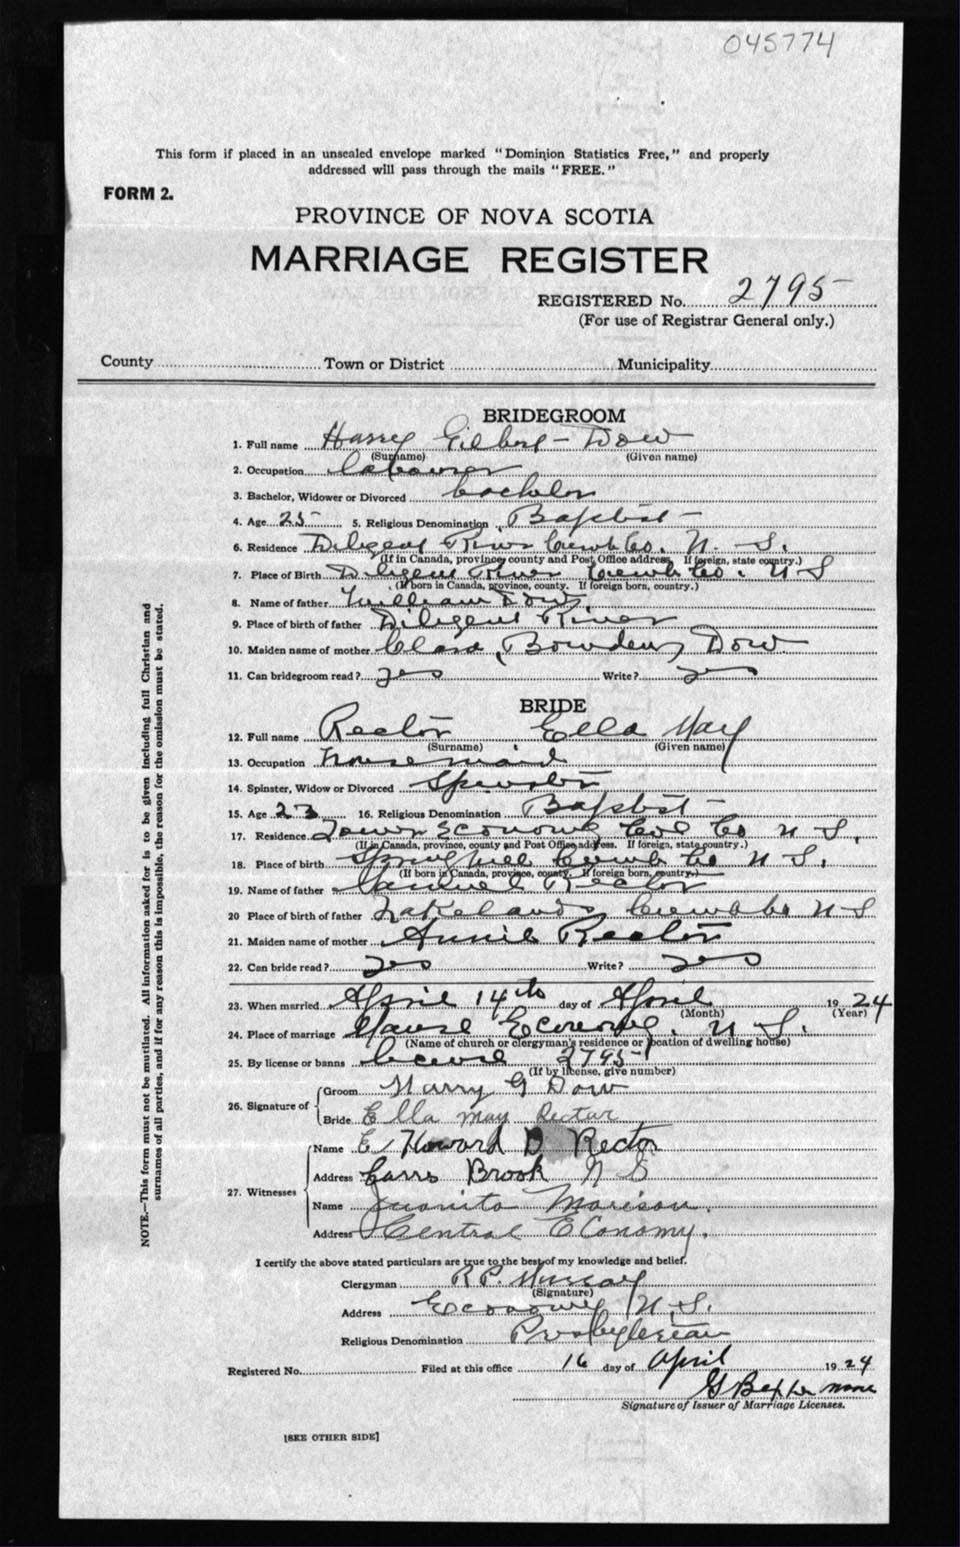 045774
This form if placed in an unsealed envelope marked "Dominion Statistics Free," and properly
addressed will pass through the mails "FREE."
FORM 2.
PROVINCE OF NOVA SCOTIA
MARRIAGE REGISTER
REGISTERED No. 2795
(For use of Registrar General only.)
County Town or District Municipality
BRIDEGROOM
1. Full name Harry Gilbert Dow
(Surname) (Given name)
2. Occupation Labourer
3. Bachelor, Widower or Divorced bachelor
4. Age 25 5. Religious Denomination Baptist
6. Residence Diligent River Cumb Co. N. S.
(If in Canada, province, county and Post Office address, If foreign, state country.)
7. Place of Birth Diligent River Cumb Co. N S
(If born in Canada, province, county. If foreign born, country.)
8. Name of father William Dow
9. Place of birth of father Diligent River
10. Maiden name of mother Clara (Bowden) Dow
11. Can bridegroom read? yes Write? yes
BRIDE
12. Full name Rector Ella May
(Surname) (Given name)
13. Occupation housemaid
14. Spinster, Widow or Divorced Spinster
15. Age 23 16. Religious Denomination Baptist
17. Residence Economy Col Co N S.
(If in Canada, province, county and Post Office address. If foreign, state country.)
18. Place of birth Springhill Cumb Co N S.
(If born in Canada, province, county. If foreign born, country.)
19. Name of father Samuel Rector
20 Place of birth of father Lakelands Cumb Co N S
21. Maiden name of mother Annie Rector
22. Can bride read? yes Write? yes
23. When married April 14th day of April 1924
(Month) (Year)
24. Place of marriage Manse Economy. N. S.
(Name of church or clergyman's residence or location of dwelling house)
25. By license or banns License 2795
(If by license, give number)
26. Signature of Groom Harry G Dow
Bride Ella May Rector
27. Witnesses Name E Howard D Rector
Address Carrs Brook N S
Name Juanita Morison.
Address Central Economy.
I certify the above stated particulars are true to the best of my knowledge and belief.
Clergyman R.P. Murray
(Signature)
Address Economy N. S.
Religious Denomination Presbyterian
Registered No. Filed at this office 16 day of April 1924
G
Signature of Issuer of Marriage Licenses.
[SEE OTHER SIDE]
NOTE.—This form must not be mutilated. All information asked for is to be given including full Christian and
surnames of all parties, and if for any reason this is impossible, the reason for the omission must be stated.